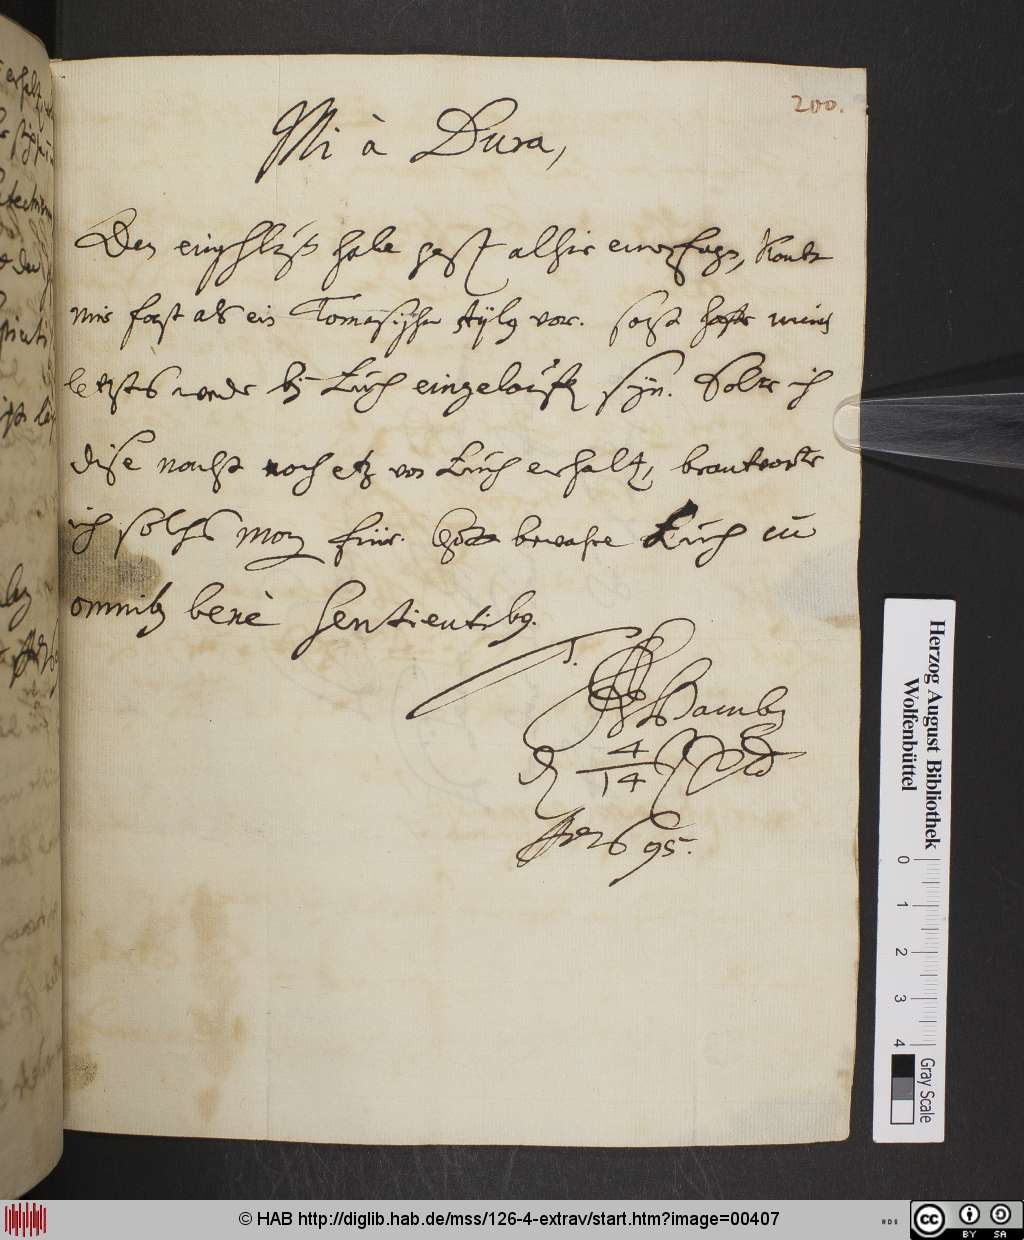 200.
Mi à Dura,
Den eingschluß habe gest alhie empfagn, komt
mir fast als ein Tomasischr stylg vor. sost hoffe meins
letztes werde bej Euch eingelauffn sejn. Solte ich
dise nacht noch etz von Euch erhaltn, beantworte
ich solches morgn frür. Gott bewahre Euch cū
omnibg benè sentientibg.
T.
4
14
95.
Herzog August Bibliothek
Wolfenbüttel
0 1 2 3 4
Gray Scale
© HAB http://diglib.hab.de/mss/126-4-extrav/start.htm?image=00407
HAB
cc BY SA